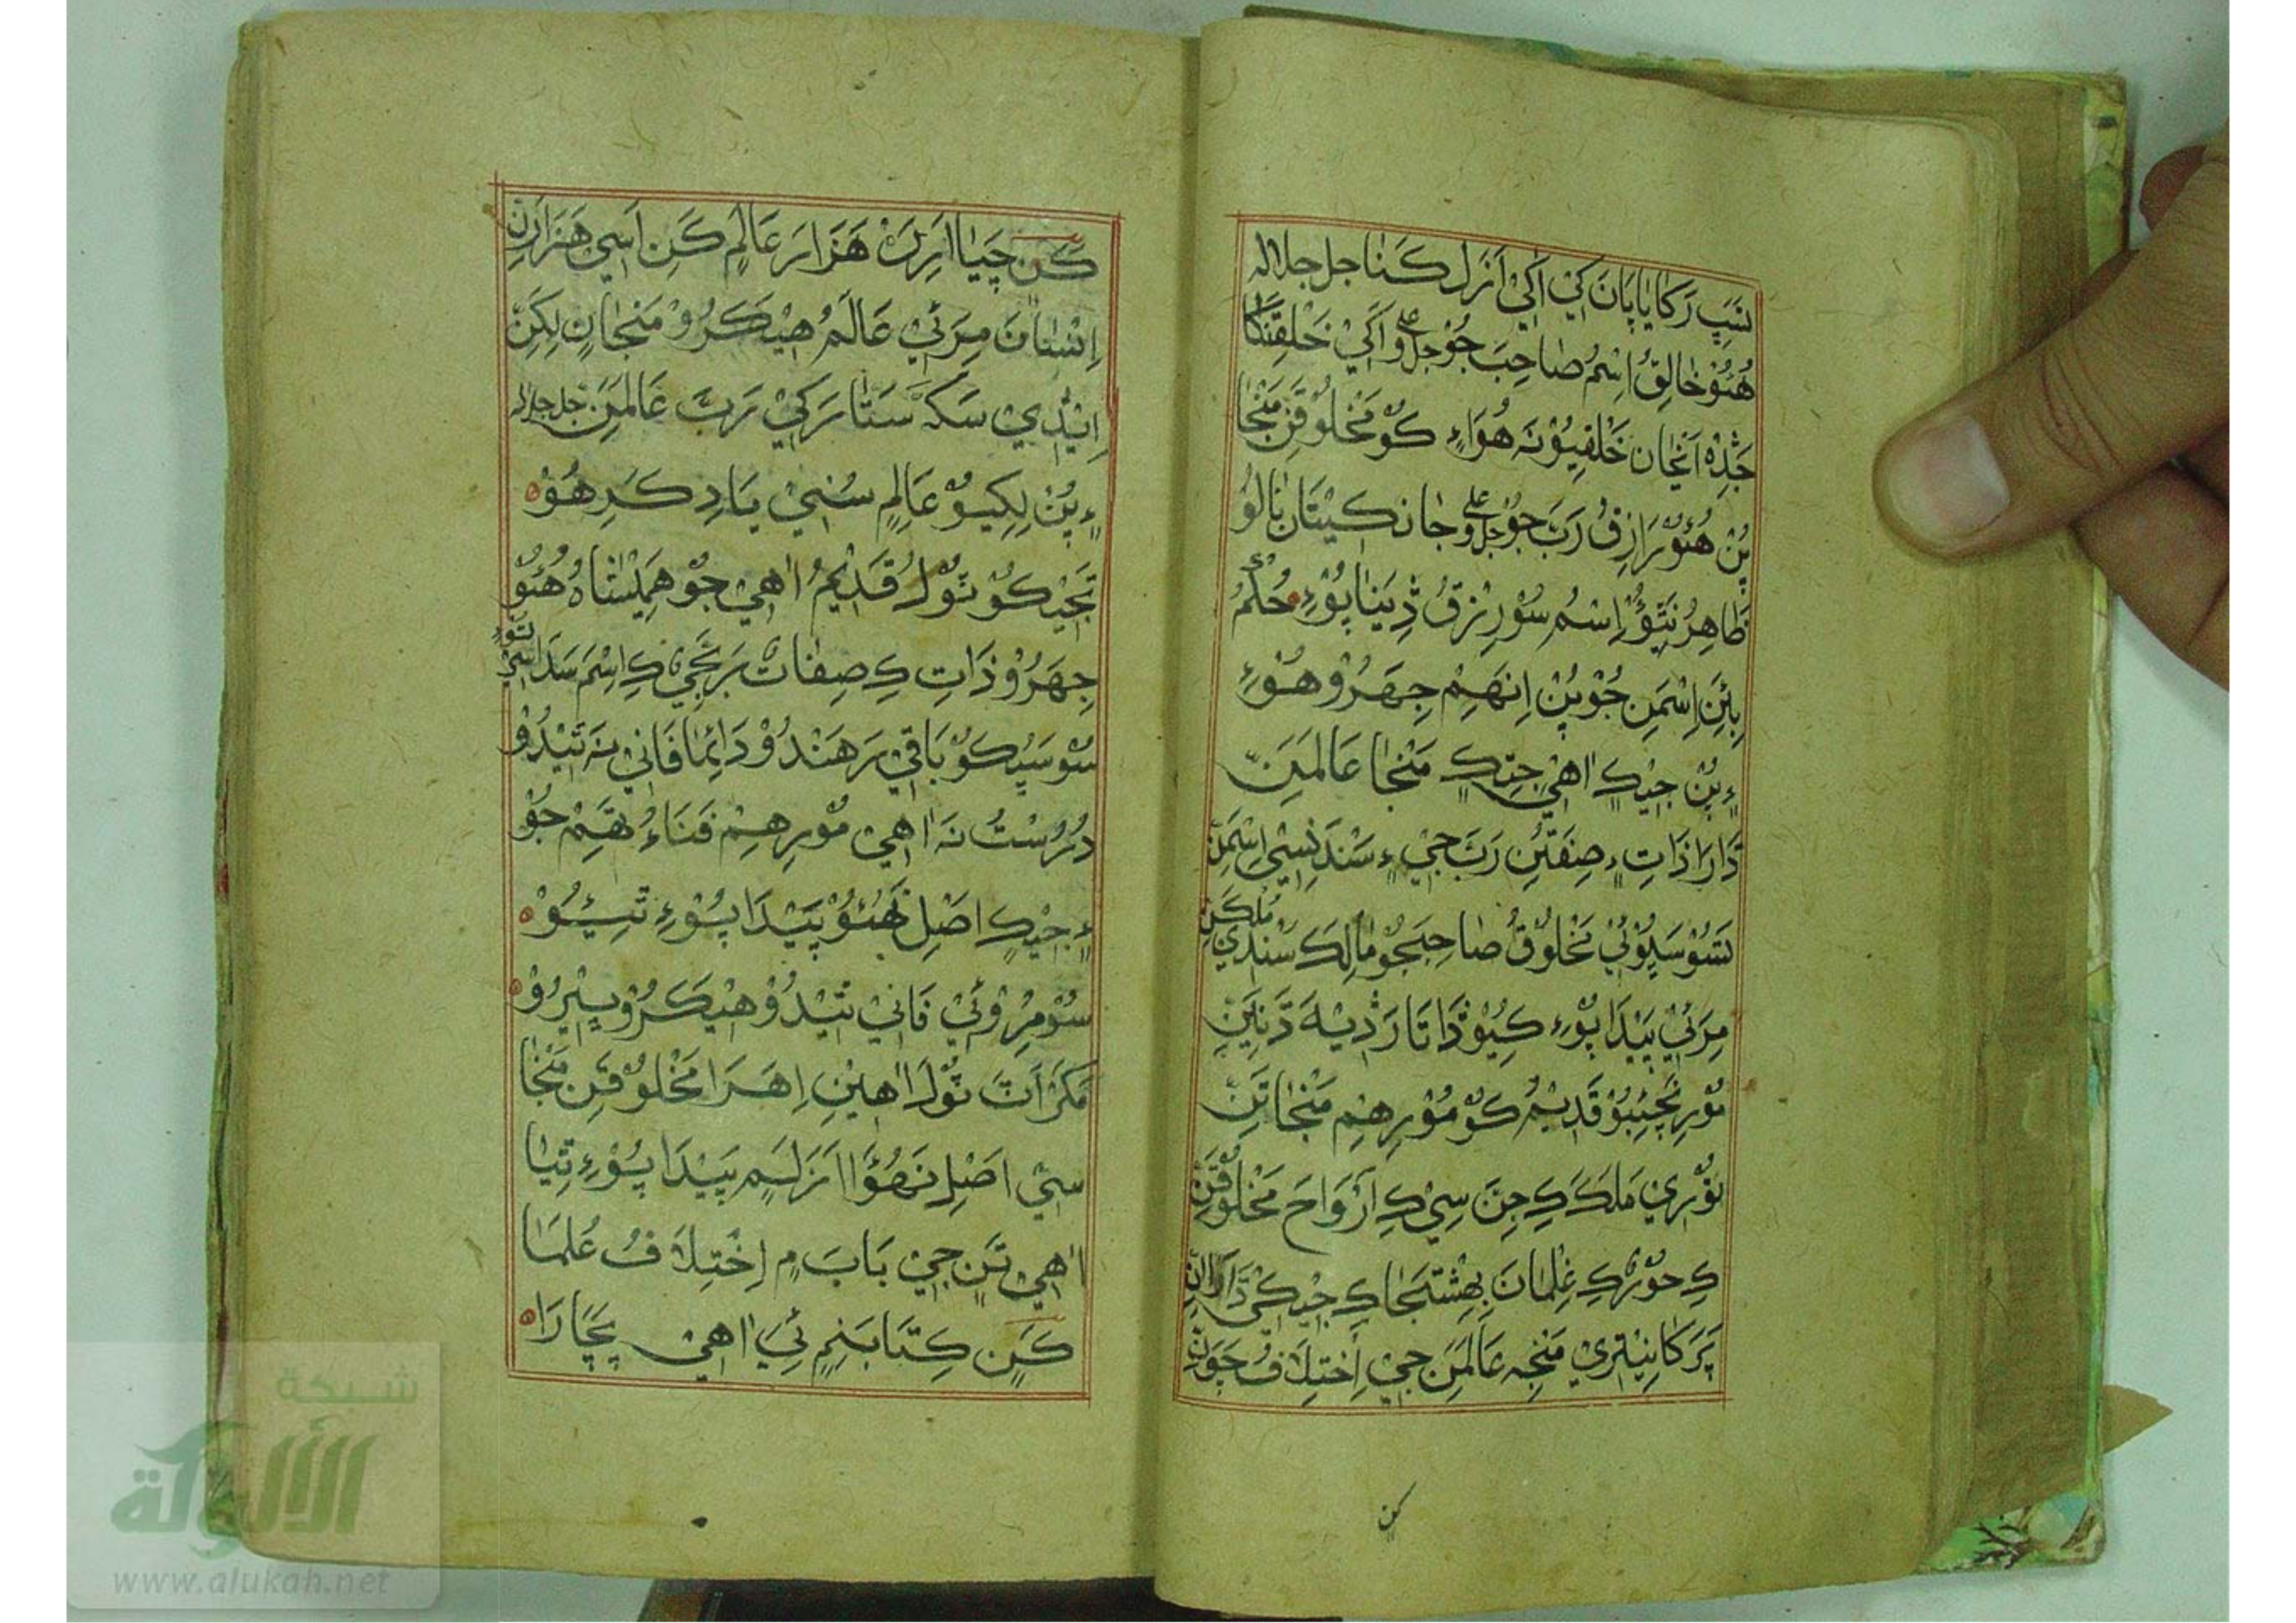 سَڀِ رَکَايَا پَانَ کَيْ اَکِيْ اَزَلَ کَنَا جل جلاله
هُئُوْ خَالِقُ اِسْمُ صَاحِبَ جُوْ جل وعلى اَکِيْ خَلْقِتَنْکَا
جَڎِهْ اَنْجَان خَلْقِيُوْ نَہ هُوَاءِ کُوْ مَخْلُوْقَنِ مَنْجَا
پُنْ هُئُوْ رَازِقُ رَبَ جُوْ جل وعلى جَانْ کِيْتَان نَالُوْ
ظَاهِرُ نَتَؤُ اِسْمُ سُوْ رِزْقُ ڎِيَنَا پُوْءِ حُکْمُ
ٻِئَنِ اِسْمَنِ جُوْ پُنْ اِنْهِمْ جِهَرُوْ هُوْءِ
ءٍ پُنْ جِيْکٍ اٰهِيْ جِتِکٍ مَنْجَا عَالَمَنِ
ڌَارَا ذَاتِ ءٍ صِفَتَنِ رَبَ جِيْ ءٍ سَنْدَنِسِيْ اِسْمَنِ
سُوْ سَڀُوْئِيْ مَخْلُوْقُ صَاحِبَجُوْ مَالِکَ سَنْدِيْ مُلْکَنِ
مِرَئِيْ پَيْدَا پُوْءِ کِيُوْ ڎَاتَارَ ڎِيْهَ ڎَنِيَنِ
نُوْرِ نَبِيْجُوْ قَدِيْمُ کُوْ مُوْرِهِمْ مَنْجَا تَنِ
نُوْرِيْ مَلَکَ کِ جِنَ سِيْ کِ اَرْوَاحَ مَخْلُوْقَنِ
کِ حُوْرُ کِ غِلْمَانَ بِهِشْتَجَا کِ جِيْکِيْ ڌَارَا اٰنِ
پَرَ کَانِيْتَرِيْ مَنْجِہ عَالَمَنِ جِيْ اِخْتِلَافُ چَوَنِ
کن
کَنِ چَيَا اَرِڙَنْ هَزَارَ عَالَمِ کَنِ اَسِيْ هَزَارَنِ
اِنْسَانَ مِرَئِيْ عَالَمُ هِيْکَرُوْ مَنْجَانِ لِکَنِ
اِيْڎِيْ سَکَہ سَتَّارَ کِيْ رَبَ عَالَمَنِ جل جلاله
ءٍ پُنْ لِکِيُوْ عَالِمٍ سُنِيْ يَادِ کَرِ هُوْ
تَجِيْکُوْ نُوْرُ قَدِيْمُ اٰهِيْ جُوْ هَمِيْشَاہُ هُئُوْ
جِهَرُوْ ذَاتِ کِ صِفَاتْ بَرَبَجِيْ کِ اِسْمَ سَدَاسِيْ تُوْءِ
سُوْ سَڀُکُوْ بَاقِيْ رَهَنْدُوْ دَائِمَا فَانِيْ نَہ تِيْنْدُوْ
دُرُسْتُ نَہ اٰهِيْ مُوْرِهِمْ فَنَاءُ بَقَمْ جُوْ
ءٍ جِيْکٍ اَصْلِ نَهُئُوْ پَيْدَا پُوْءِ تِيُوْ
سُوْ مِرْوَئِيْ فَانِيْ تِيْنْدُوْ هِيْکَرُوْ ٻِيْرُوْ
مَکَرْ اَٺَ نُوْرَ اٰهِيْنِ اِهَرَا مَخْلُوْقَنِ مَنْجَا
سِيْ اَصْلِ نَهُؤَا اَزَلَمِ پَيْدَا پُوْءِ تِيَا
اٰهِيْ تَنِ جِيْ بَابَ ۾ اِخْتِلَافُ عُلَمَا
کَنِ کِتَابَنِمِ ئِيْ اٰهِيْ بَچَارَا
شبكة
الألوكة
www.alukah.net